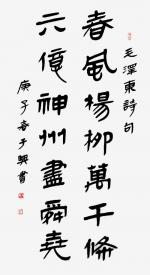 毛澤東詩句
春風楊柳萬千條
六億神州盡舜堯
庚子春于興書